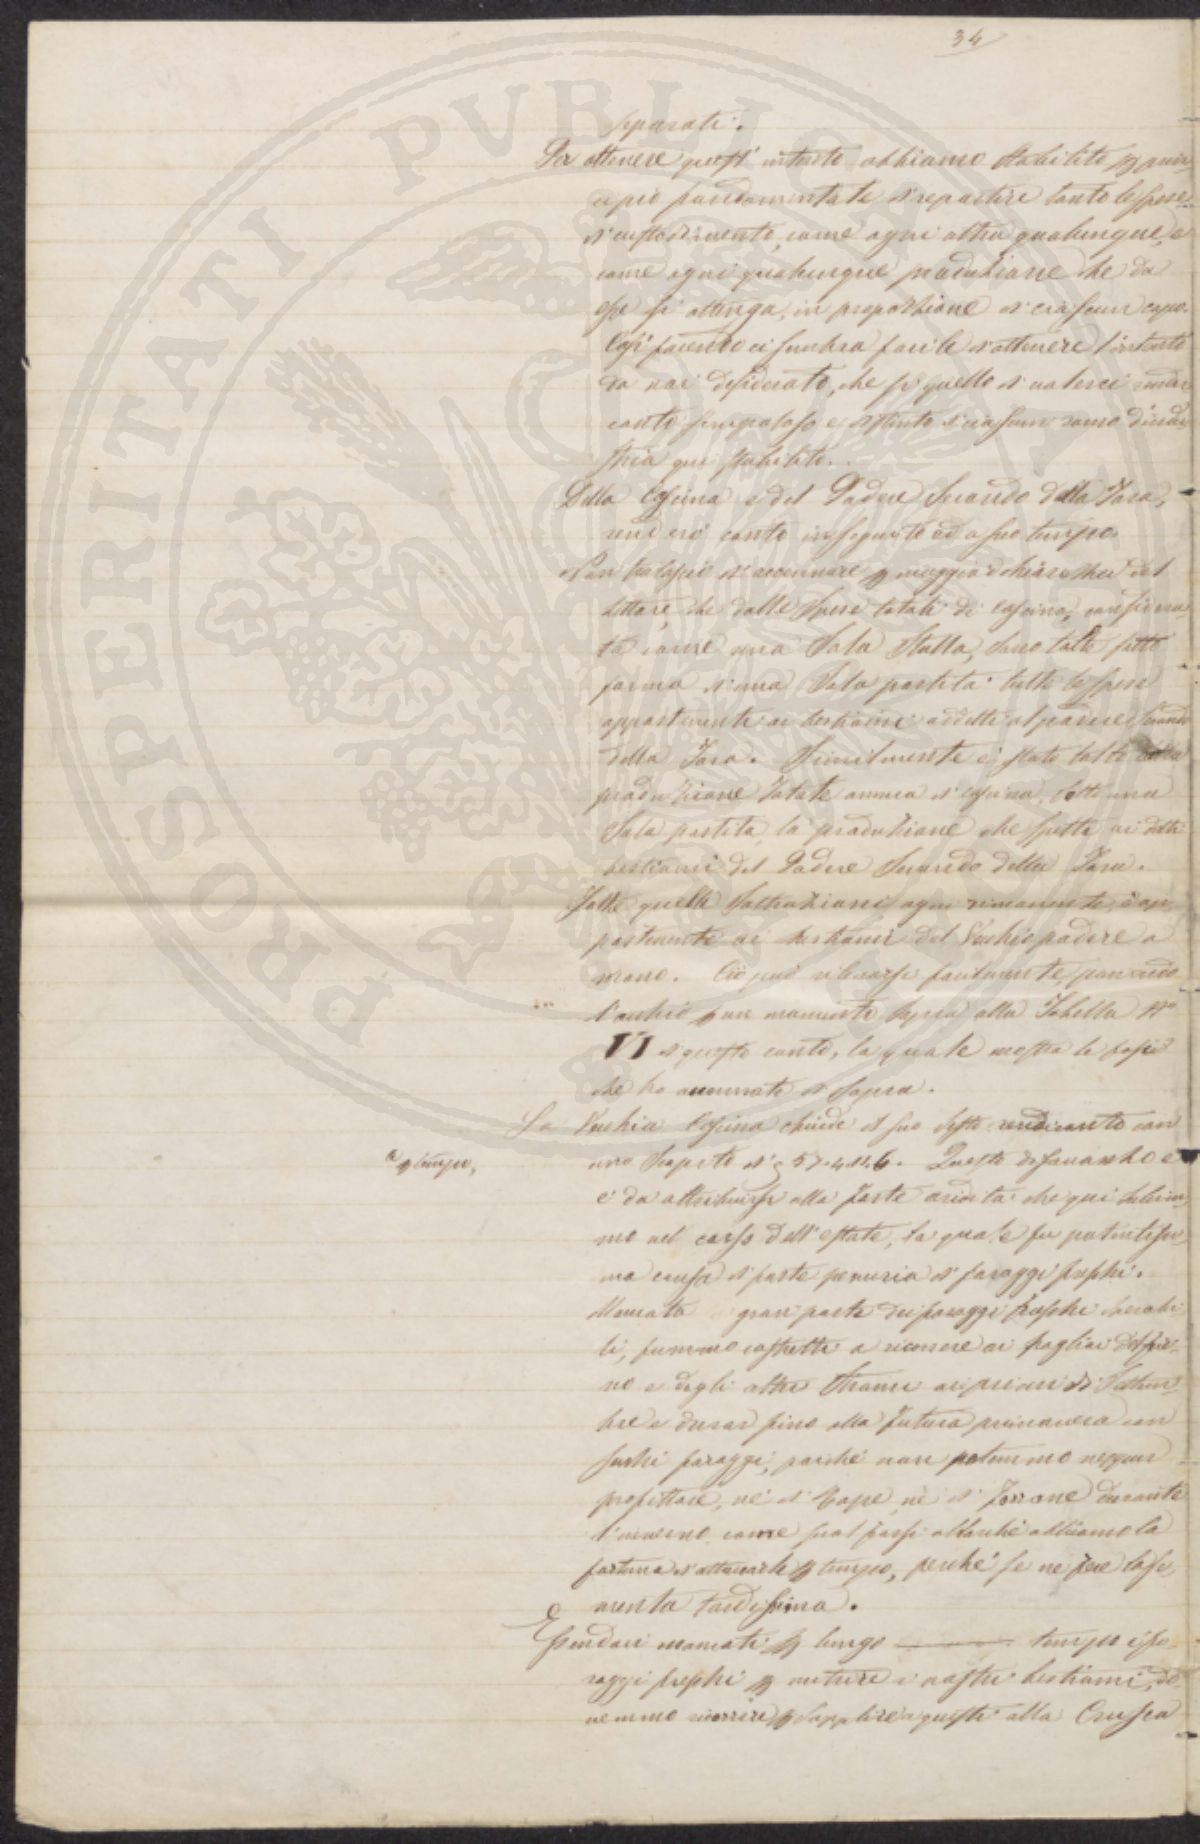 34
separati.
Per ottenere quest' intento abbiamo stabilito per prin-
cipio fondamentale di repartire tanto le spese
di custodimento, come ogni altra qualunque, e
come ogni qualunque produzione che da
esse si ottenga, in proporzione di ciascun capo.
Così facendo ci sembra facile d'ottenere l'intento
da noi desiderato, che è quello di valerci
conto scrupoloso e distinto di ciascun ramo d'indu-
stria qui stabilito.
Della Cascina e del Podere Secondo della Fara,
renderò conto in seguito ed a suo tempo.
Non tralascio di accennare per maggior dichiarazione del
lettore, che dalle Spese totali di Cascina, considera-
ta come una Sola Stalla, sono tolte sotto
forma d'una Sola partita tutte le spese
appartenenti ai bestiami addetti al podere secondo
della Fara. Similmente è stato tolto dalla
produzione Totale annua di cascina, sotto una
Sola partita, la produzione che spetta ai detti
bestiami del Podere Secondo della Fara.
Fatte quelle Sottrazioni, ogni rimanente, è ap-
partenente ai bestiami del Vecchio podere a
mano. Ciò può rilevarsi facilmente, ponendo
l'occhio per un momento sopra alla Tabella No
VI di questo conto, la quale mostra le
che ho accennate di sopra.
La Vecchia Cascina chiude il suo sesto rendiconto con
uno Scapito di £ 57.4.11.6. Questo disavanzo e
è da attribuirsi alla forte aridità che qui
mo nel corso dell'estate, la quale fu potentissi-
ma causa di forte penuria di foraggi freschi.
Mancata gran parte dei foraggi freschi
li, fummo costretti a ricorrere ai pagliai del fie-
no e degli altri Strami ai primi di Settem-
bre e durar fino alla futura primavera con
secchi foraggi, poichè non potemmo neppur
profittare, nè di Rape, nè di Ferrane durante
l'inverno come suol farsi allorchè abbiamo la
fortuna d'ottenerle per tempo, perchè se ne fece la Se-
menta tardissima.
a per tempo,
Essendoci mancati per lungo tempo i fo-
raggi freschi per nutrire i nostri bestiami, do-
vemmo ricorrere per Supplire a questi alla Crusca